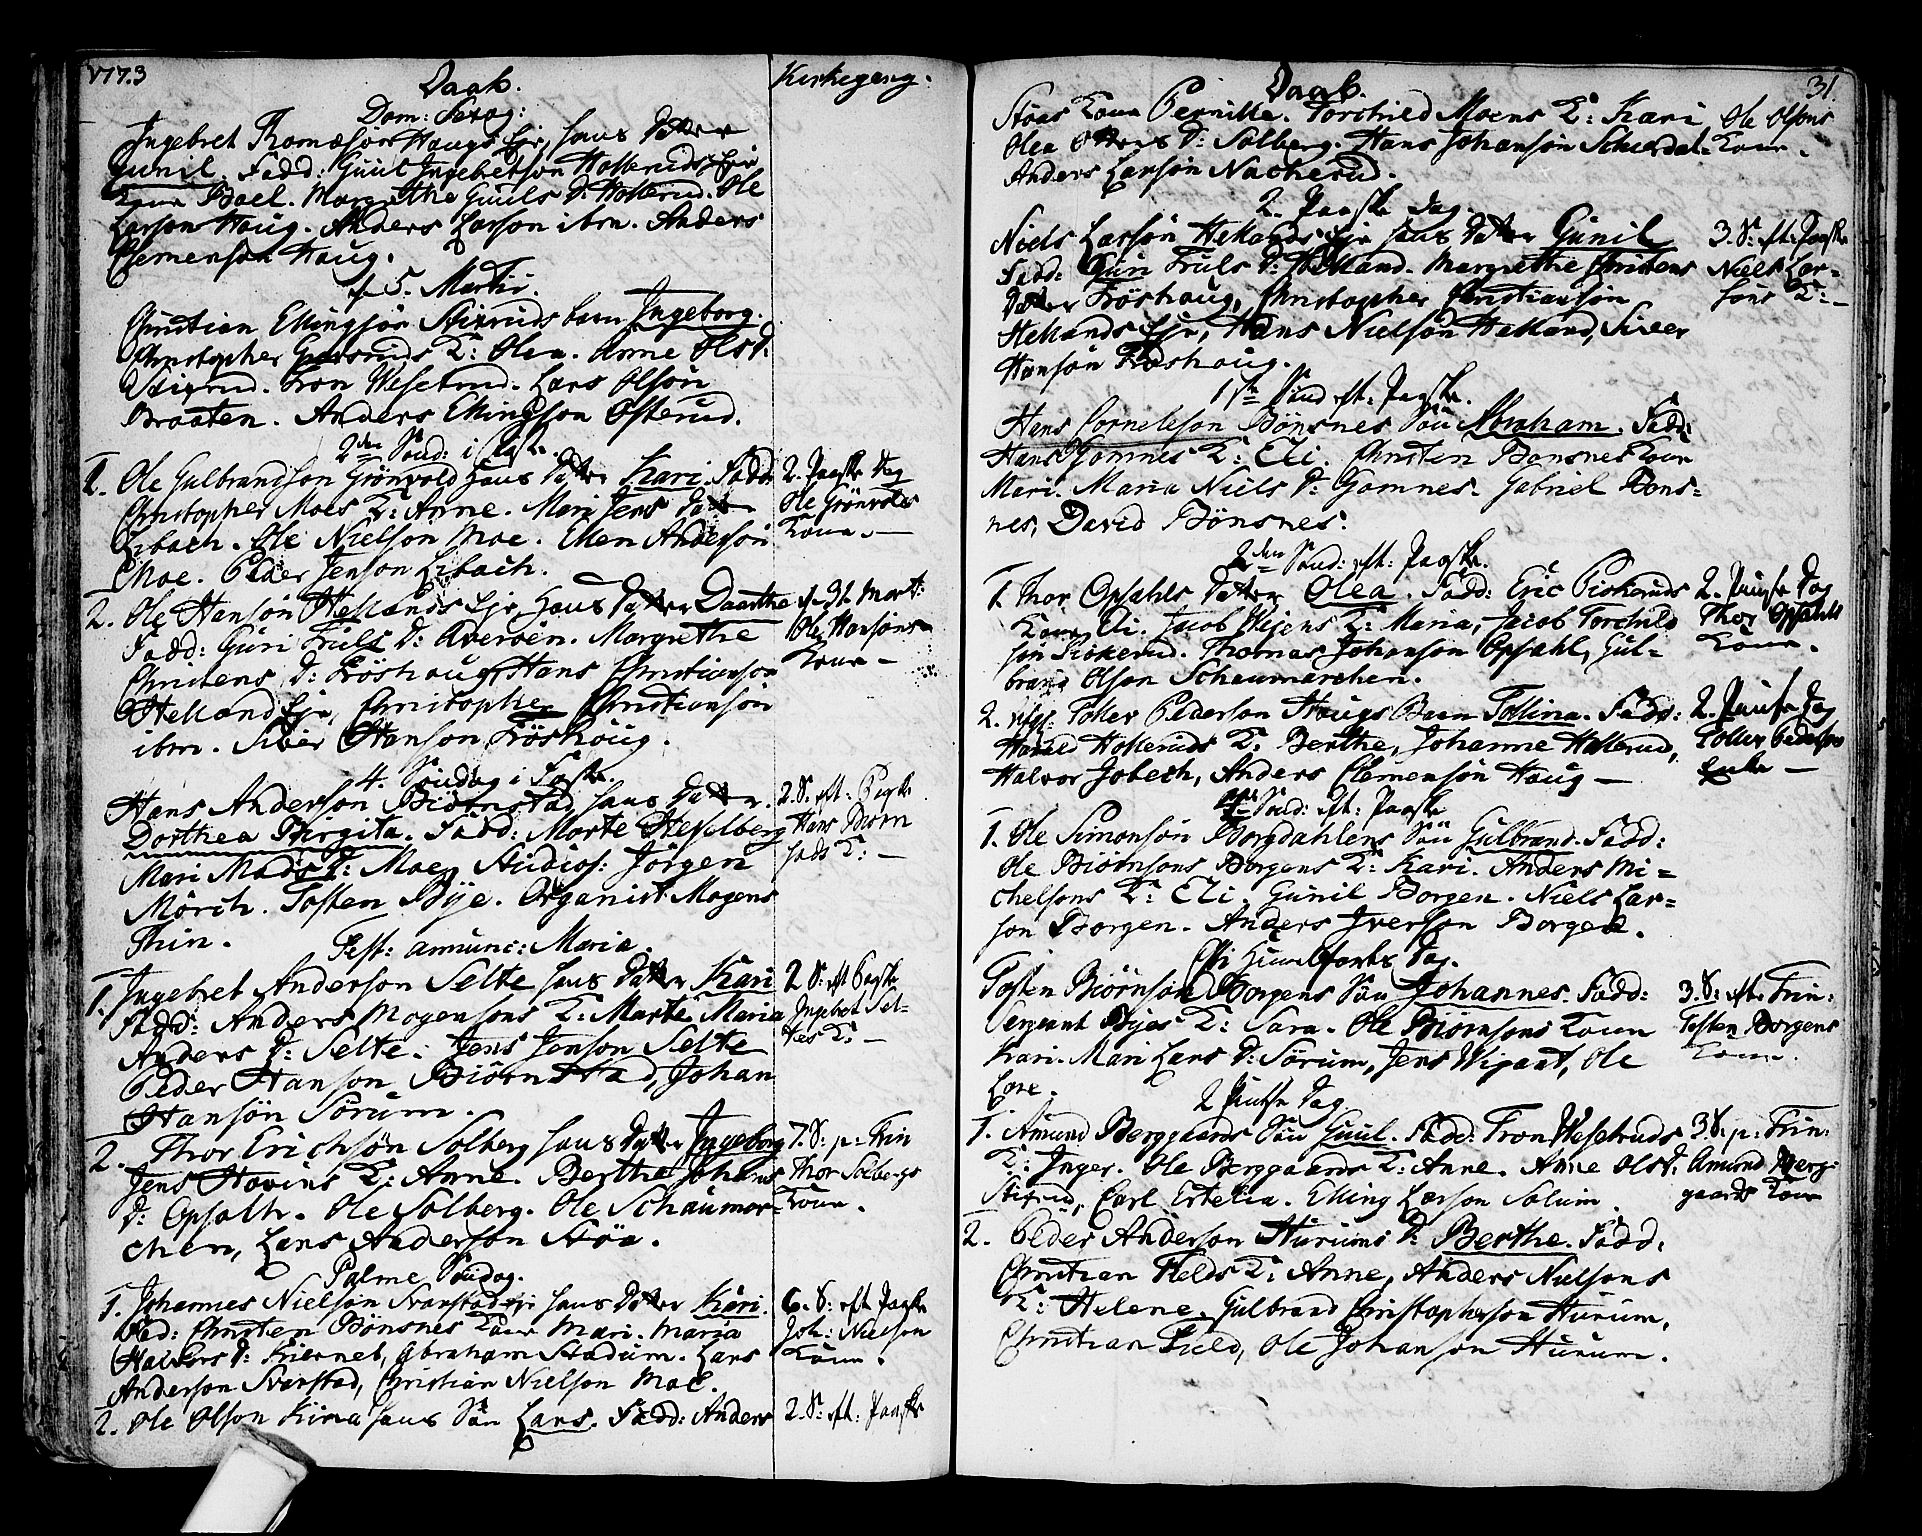 1773
Daab.
Kirkegang.
Dom: Sexag:
Ingebret Thomæsön Haugs Eje hans Datter
Gunil. Fadd: Guul Ingebretson Hollerids Eje
Kone Boel. Margrethe Guuls D: Hollerud. Ole
Larson Haug. Anders Larson ibm. Anders
Clemenson Haug.
d. 5. Martii.
Christian Ellingsön Stixruds barn Ingeborg.
Christopher K: Olea. Anne Ols D:
Stixrud. Tron Wesetrud. Lars Olson
Braaten. Anders Ellingson Ofterud.
2den Sönd: i Faste.
1. Ole Gulbrandson Grönvold hans Datter Kari. Fadd:
Christopher Moes K: Anne. Mari Jens Datter
Erbach. Ole Nielson Moe. Ellen Anderson
Moe. Peder Jenson Erbach.
2. Paaske Dag
Ole Grönvolds
Kone. —
2. Ole Hansön Hellands Eje Hans Datter Daarthe
Fadd: Guri Truls D: Averöen. Margrethe
Christens D: Fröshaug, Hans Christianson
Helland Eje, Christopher Christiansön
ibm. Siver Hanson Fröshoug.
Ole Hansöns
Kone —
4. Söndag i Faste.
Hans Anderson Biörnstad hans Datter.
Dorthea Birgita. Fadd: Morte Hesselberg
Mari Mads D: Moe, Studios: Jörgen
Mörch. Tosten Bye. Organist Mogens
Thin.
2. S. eft: Paaske
Hans Biörn
stads K: —
Fest: annunc: Maria.
1. Ingebret Anderson Selte hans Datter Kari
Fadd: Anders Mogensons K: Marte. Maria
Anders D: Selte. Jens Jenson Selte
Peder Hanson Biörnstad, Johan
Hansön Sörum.
2 S: eft Paaske
Ingebret Sel-
tes K: —
2. Thor Erichsön Solberg hans Datter Ingeborg
Jens Hovins K: Anne. Berthe Johans
D: Opsalh. Ole Solberg. Ole Schaumar-
chen, Lars Anderson Stöa.
7. S: p: Trin
Thor Solbergs
Kone.
Palme Söndag.
1. Johannes Nielson Svarstad eje hans Datter Kari.
Fad: Christen Bönsnes Kone Mari. Maria
Halvors D: Kiernet, Abraham Stadum. Lars
Anderson Svarstad, Christian Nielson Moe.
6. S: eft Paaske
Joh: Nielson
Kone.
2. Ole Olson hans Sön Lars. Fadd: Anders
2. S: eft: Paaske
31.
Daab.
Stöas Kone Pernille. Torchild Moens K: Kari
Olea D: Solberg. Hans Johanson
Anders Larson Nacherud.
Ole Olsons
Kone.
2. Paaske Dag.
Niels Larsön Hellands Eje hans Datter Gunil
Fadd: Guri Truls D: Helland. Margrethe Christens
Datter Fröshaug, Christopher Christiansön
Hellands Eje, Hans Nielson Helland, Siver
Hansön Fröshoug.
3. S: eft: Paaske
Niels Lar-
sons K: —
1ste Sönd eft: Paaske.
Hans Cornelson Bönsnes Sön Abraham. Fadd:
Hans Gomnes K: Eli. Christen Bonsnes Kone
Mari. Maria Niels D: Gomnes. Gabriel Bons-
nes, David Bönsnes.
2den Sönd: eft: Paaske.
1. Thor Opsahls Datter Olea. Fadd: Eric Piskeruds
Kone Eli. Jacob Weiens K: Maria, Jacob Torchild
sön Piskerud. Thomas Johanson Opsahl, Gul-
brand Olson Schaumarchen.
2. Pintse Dag
Thor Opsahls
Kone.
2. Toller Pederson Haugs Barn Tollina. Fadd:
Harald Holleruds K: Berthe, Johanne Hollerud,
Halvor Jobech, Anders Clemensön Haug —
2. Pintse Dag
Toller Pedersons
Enke —
Sönd: eft: Paaske
1. Ole Simonsön Borgdahlens Sön Gulbrand. Fadd:
Ole Biörnsons Borgens K: Kari. Anders Mi-
chelsons K: Eli. Gunil Borgen. Niels Lar-
son Borgen. Anders Iverson Borgen.
Chi Himmelfarts Dag.
Tosten Biörnsön Borgens Sön Johannes. Fadd:
Sergeant Byes K: Sara. Ole Biörnsons Kone
Kari. Mari Lars D: Sörum, Jens Wigant, Ole
Lore.
3. S: eft: Trin:
Tosten Borgens
Kone.
2 Pintse Dag
1. Amund Berggaards Sön Guul. Fadd: Tron Wesetruds
K: Inger. Ole Berggaards K: Anne. Anne Ols D:
Stixrud, Carl Ertelia. Elling Larson Solum.
3. S: p: Trin:
Amund Berg-
gaards Kone
2. Peder Anderson Hurums D: Berthe. Fadd:
Christian Fields K: Anne, Anders Nielsons
K: Helene. Gulbrand Christopherson Hurum,
Christian Field, Ole Johanson Hurum.